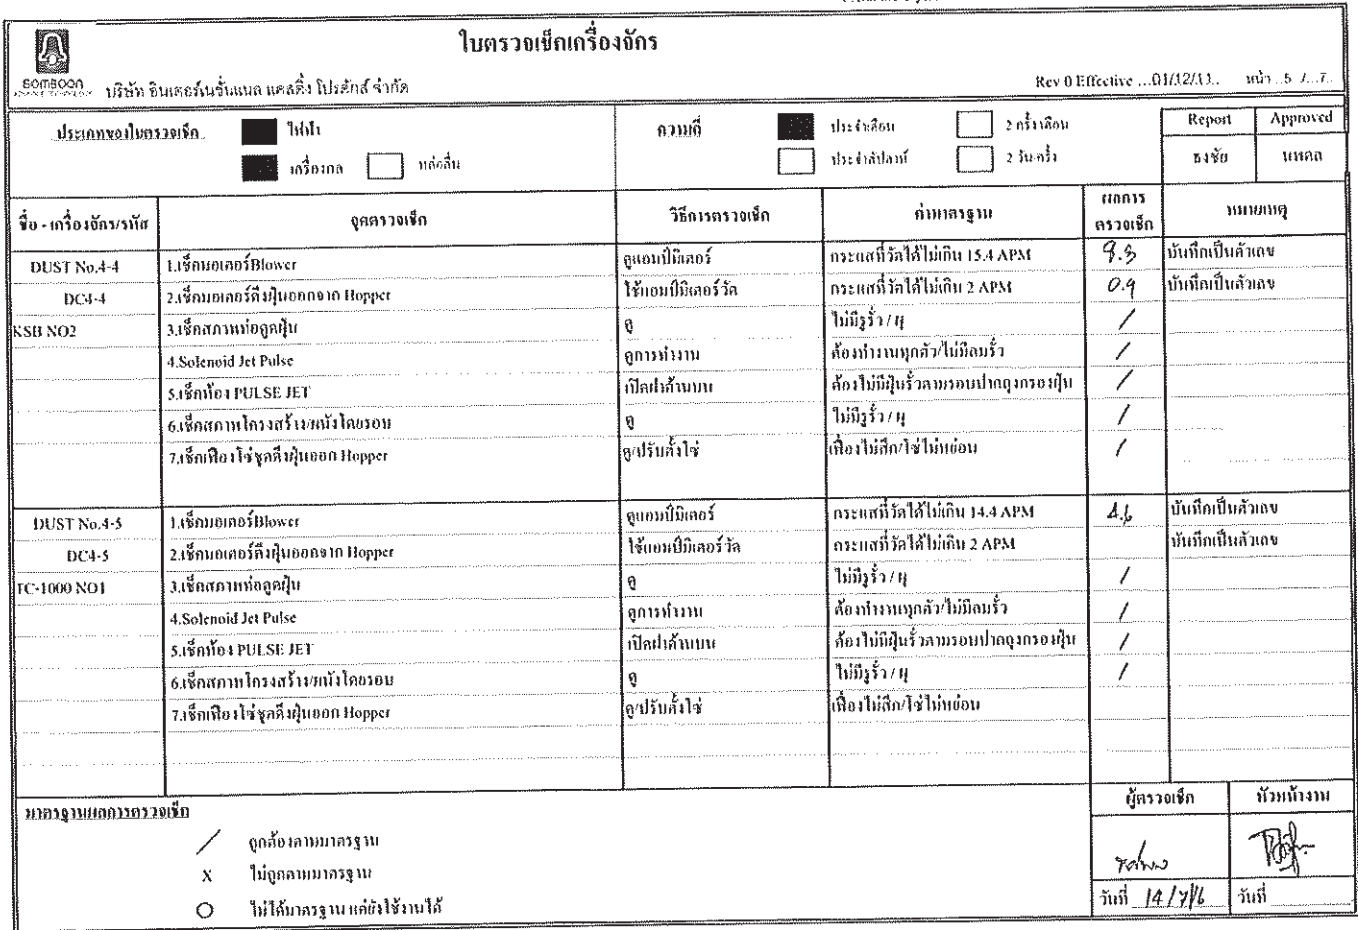 ใบตรวจเช็กเครื่องจักร
SOMBOON
บริษัท อินเตอร์เนชั่นแนล แคสติ้ง โปรดักส์ จำกัด Rev 0 Effective ...01/12/11.. หน้า ..5 /...7..
ประเภทของใบตรวจเช็ก ไฟฟ้า ความถี่ ประจำเดือน 2 ครั้ง/เดือน Report Approved
เครื่องกล หล่อลื่น ประจำสัปดาห์ 2 วัน/ครั้ง ธงชัย นพดล
ชื่อ - เครื่องจักร/รหัส จุดตรวจเช็ก วิธีการตรวจเช็ก ค่ามาตรฐาน ผลการตรวจเช็ก หมายเหตุ
DUST No.4-4 1.เช็กมอเตอร์Blower ดูแอมป์มิเตอร์ กระแสที่วัดได้ไม่เกิน 15.4 APM 9.3 บันทึกเป็นตัวเลข
DC4-4 2.เช็กมอเตอร์ดึงฝุ่นออกจาก Hopper ใช้แอมป์มิเตอร์วัด กระแสที่วัดได้ไม่เกิน 2 APM 0.9 บันทึกเป็นตัวเลข
KSB NO2 3.เช็กสภาพท่อดูดฝุ่น ดู ไม่มีรูรั่ว / ผุ /
4.Solenoid Jet Pulse ดูการทำงาน ต้องทำงานทุกตัว/ไม่มีลมรั่ว /
5.เช็กห้อง PULSE JET เปิดฝาด้านบน ต้องไม่มีฝุ่นรั่วตามรอบปากถุงกรองฝุ่น /
6.เช็กสภาพโครงสร้าง/ผนังโดยรอบ ดู ไม่มีรูรั่ว / ผุ /
7.เช็กเฟืองโซ่ชุดดึงฝุ่นออก Hopper ดู/ปรับตั้งโซ่ เฟืองไม่สึก/โซ่ไม่หย่อน /
DUST No.4-5 1.เช็กมอเตอร์Blower ดูแอมป์มิเตอร์ กระแสที่วัดได้ไม่เกิน 14.4 APM 4.6 บันทึกเป็นตัวเลข
DC4-5 2.เช็กมอเตอร์ดึงฝุ่นออกจาก Hopper ใช้แอมป์มิเตอร์วัด กระแสที่วัดได้ไม่เกิน 2 APM บันทึกเป็นตัวเลข
TC-1000 NO1 3.เช็กสภาพท่อดูดฝุ่น ดู ไม่มีรูรั่ว / ผุ /
4.Solenoid Jet Pulse ดูการทำงาน ต้องทำงานทุกตัว/ไม่มีลมรั่ว /
5.เช็กห้อง PULSE JET เปิดฝาด้านบน ต้องไม่มีฝุ่นรั่วตามรอบปากถุงกรองฝุ่น /
6.เช็กสภาพโครงสร้าง/ผนังโดยรอบ ดู ไม่มีรูรั่ว / ผุ /
7.เช็กเฟืองโซ่ชุดดึงฝุ่นออก Hopper ดู/ปรับตั้งโซ่ เฟืองไม่สึก/โซ่ไม่หย่อน
มาตรฐานผลการตรวจเช็ก ผู้ตรวจเช็ก หัวหน้างาน
/ ถูกต้องตามมาตรฐาน
X ไม่ถูกตามมาตรฐาน
O ไม่ได้มาตรฐาน แต่ยังใช้งานได้
วันที่ 14/7/16 วันที่